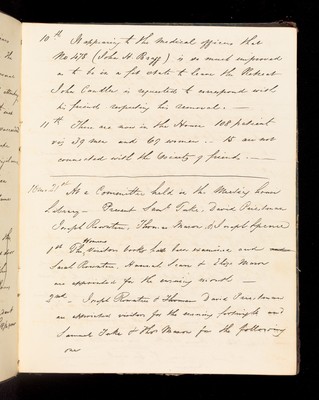 10th It appearing to the medical officers that
No 478 (John H. Bragg) is so much improved
as to be in a fit state to leave the Retreat
John Candler is requested to correspond with
his friends respecting his removal. —
11th There are now in the House 108 patients
viz 39 men and 69 women .. 15 are not
connected with the Society of friends. —
10 mo 21st At a Committee held in the Meeting house
Library — Present Saml Tuke, David Priestman
Joseph Rowntree, Thomas Mason & Joseph Spence
1st The Womens Visitors books have been examined and
Sarah Rowntree, Hannah & Eliza Mason
are appointed for the ensuing month —
2nd — Joseph Rowntree & David Priestman
are appointed visitors for the ensuing fortnight and
Samuel Tuke & Thos Mason for the following
one